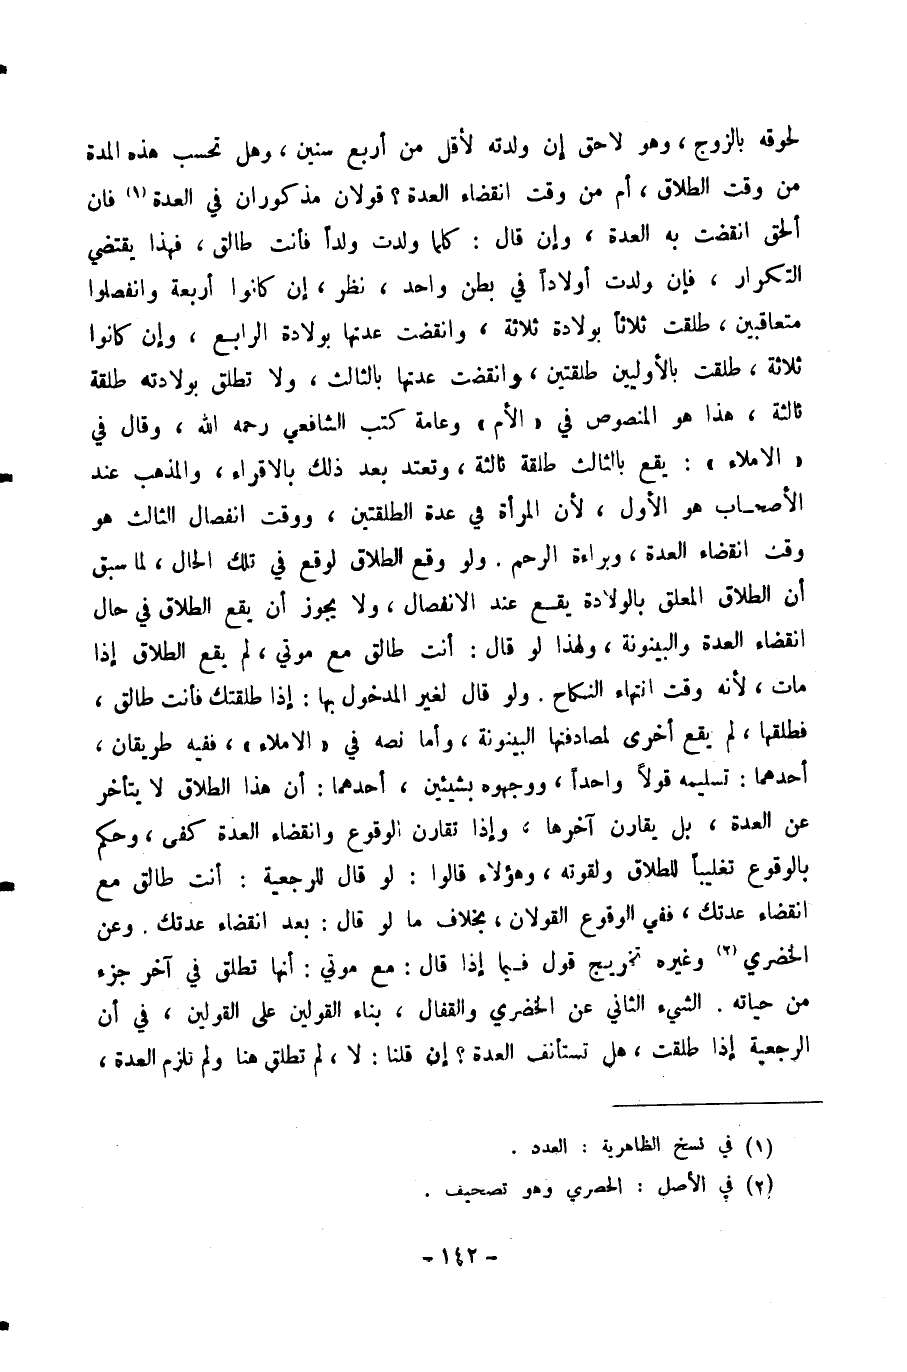 لحوقه بالزوج ، وهو لاحق إن ولدته لأقل من أربع سنين ، وهل تحسب هذه المدة
من وقت الطلاق ، أم من وقت انقضاء العدة ؟ قولان مذكوران في العدة (١) فان
ألحق انقضت به العدة ، وإن قال : كلما ولدت ولداً فأنت طالق ، فهذا يقتضي
التكرار ، فإن ولدت أولاداً في بطن واحد ، نظر ، إن كانوا أربعة وانفصلوا
متعاقبين ، طلقت ثلاثاً بولادة ثلاثة ، وانقضت عدتها بولادة الرابع ، وإن كانوا
ثلاثة ، طلقت بالأوليين طلقتين ، وانقضت عدتها بالثالث ، ولا تطلق بولادته طلقة
ثالثة ، هذا هو المنصوص في « الأم » وعامة كتب الشافعي رحمه الله ، وقال في
« الاملاء » : يقع بالثالث طلقة ثالثة ، وتعتد بعد ذلك بالاقراء ، والمذهب عند
الأصحاب هو الأول ، لأن المرأة في عدة الطلقتين ، ووقت انفصال الثالث هو
وقت انقضاء العدة ، وبراءة الرحم . ولو وقع الطلاق لوقع في تلك الحال ، لما سبق
أن الطلاق المعلق بالولادة يقع عند الانفصال ، ولا يجوز أن يقع الطلاق في حال
انقضاء العدة والبينونة ، ولهذا لو قال : أنت طالق مع موتي ، لم يقع الطلاق إذا
مات ، لأنه وقت انتهاء النكاح . ولو قال لغير المدخول بها : إذا طلقتك فأنت طالق ،
فطلقها ، لم يقع أخرى لمصادفتها البينونة ، وأما نصه في « الاملاء » ، ففيه طريقان ،
أحدهما : تسليمه قولاً واحداً ، ووجهوه بشيئين ، أحدهما : أن هذا الطلاق لا يتأخر
عن العدة ، بل يقارن آخرها ، وإذا تقارن الوقوع وانقضاء العدة كفى ، وحكم
بالوقوع تغليباً للطلاق ولقوته ، وهؤلاء قالوا : لو قال للرجعية : أنت طالق مع
انقضاء عدتك ، ففي الوقوع القولان ، بخلاف ما لو قال : بعد انقضاء عدتك . وعن
الخضري (٢) وغيره تخريج قول فيما إذا قال : مع موتي : أنها تطلق في آخر جزء
من حياته . الشيء الثاني عن الخضري والقفال ، بناء القولين على القولين ، في أن
الرجعية إذا طلقت ، هل تستأنف العدة ؟ إن قلنا : لا ، لم تطلق هنا ولم تلزم العدة ،
(١) في نسخ الظاهرية : العدد .
(٢) في الأصل : الحصري وهو تصحيف .
- ١٤٢ -